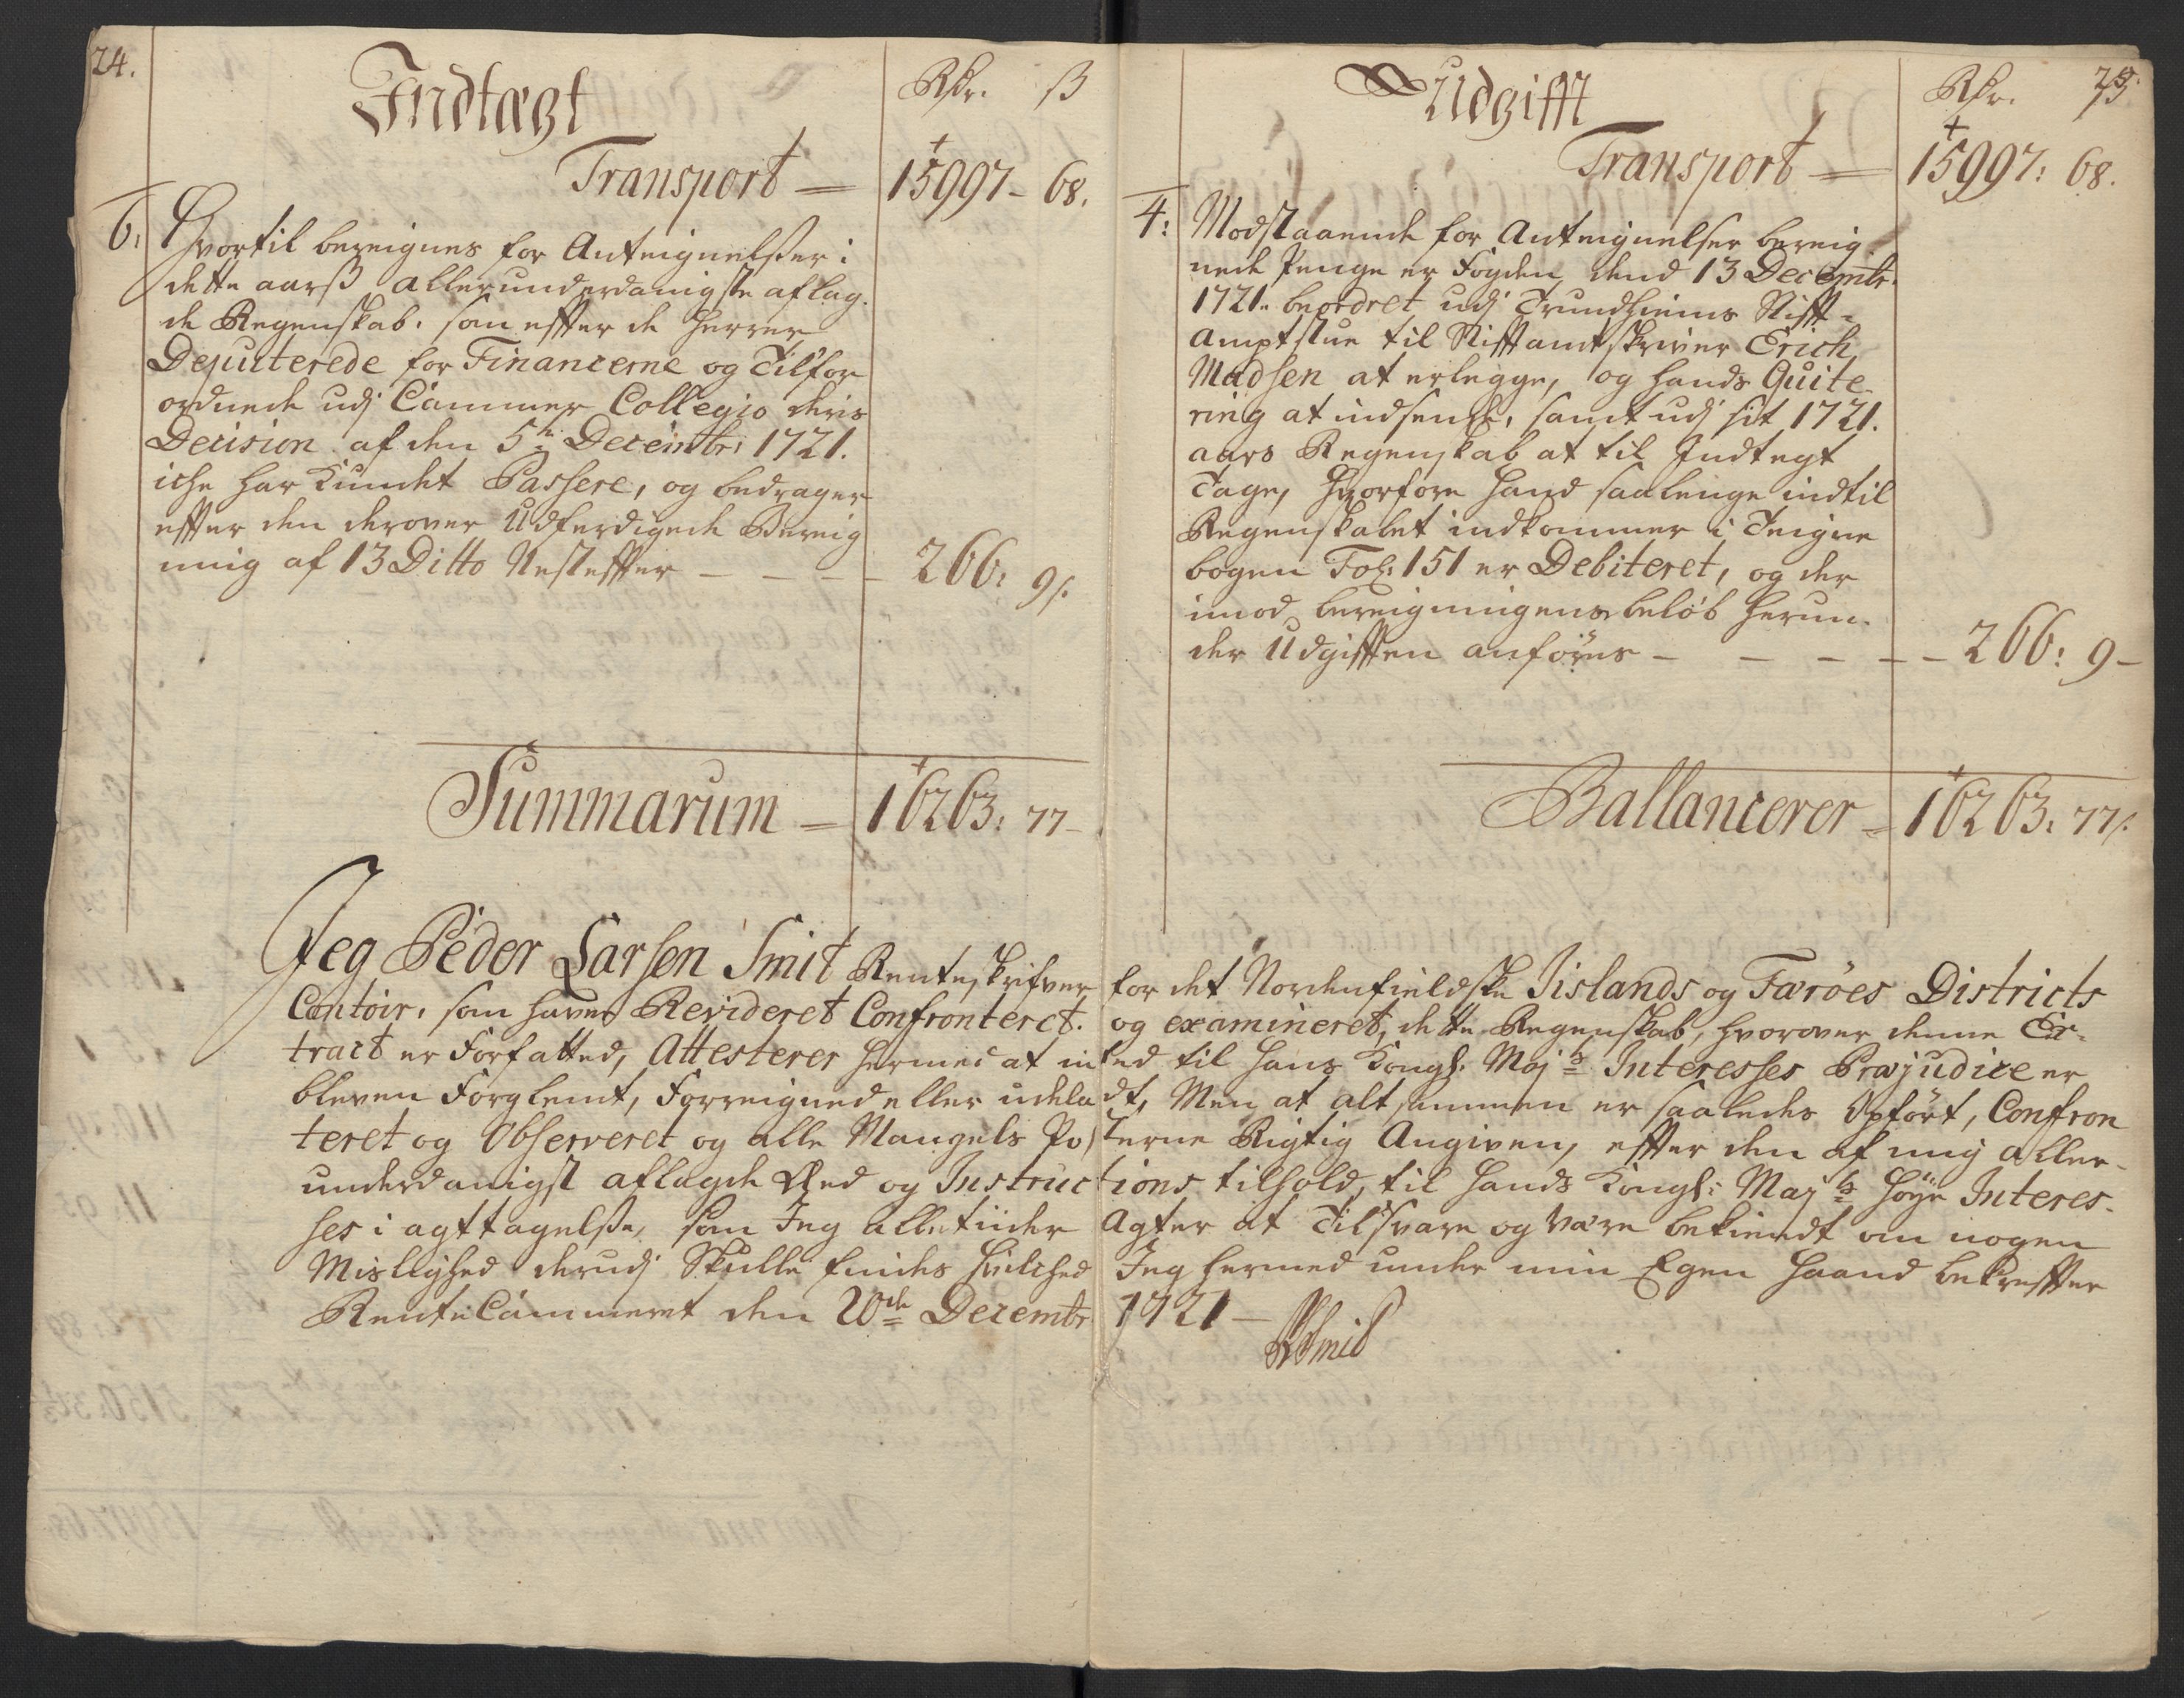 24.
Indtægt
Rdr. ß
Transport = 15997 - 68.
6: Hvortil bereignes for Anteignelßer i
dette aarß allerunderdanigste aflag-
de Regenskab, som effter de Herrer
Deputerede for Financerne og Tilfor
ordnede udj Cammer Collegio deris
Decision af den 5te Decembr: 1721.
iche har kundet Passere, og bedrager
effter den derover Udferdigede Bereig
ning af 13 Ditto Nesteffter - - - 266: 9/.
Summarum = 16263: 77-
Udgifft
Rdr. ß
25.
Transport = 15997: 68.
4: Modstaaende for Anteignelser bereig
nede Penge er Fogden dend 13 Decembr.
1721. beordret udj Trundhiems Stifft-
amptstue til Stifftamtskriver Erich
Madsen at erlegge, og hands Quite-
ring at indsende, samt udj sit 1721.
aars Regenskab at til Indtegt
Tage, Hvorfore hand saalenge indtil
Regenskabet indkommer i Teigne
bogen Fol: 151 er Debiteret, og der
imod bereigningens beløb herun-
der Udgifften anføres - - - - - 266: 9 -
Ballancerer = 16263: 77/.
Jeg Peder Larsen Smit Renteskrifver for det Nordenfieldske Iislands og Færøes Districts
Contoir, som haver Revideret Confronteret og examineret, dette Regenskab, hvorover denne Ex-
tract er Forfatted, Attesterer hermed at inted til Hans Kongl: Maj:ts Interesses Præjudice er
bleven Forglemt, Forreigned eller udeladt, Men at alt sammen er saaledes Opført, Confron
teret og Observeret og alle Mangels Posterne Rigtig Angiven, effter den af mig aller-
underdanigst aflagde Æed og Instructions tilhold, til Hands Kongl: Maj:ts Høye Interes-
ses i agttagelße, som Jeg alletiider Agter at Tilsvare og være bekiendt om nogen
Mislighed derudj Skulle findes Hvilched Jeg hermed under min Egen Haand bekreffter
RenteCammeret den 20de Decembr 1721 -
PLSmid